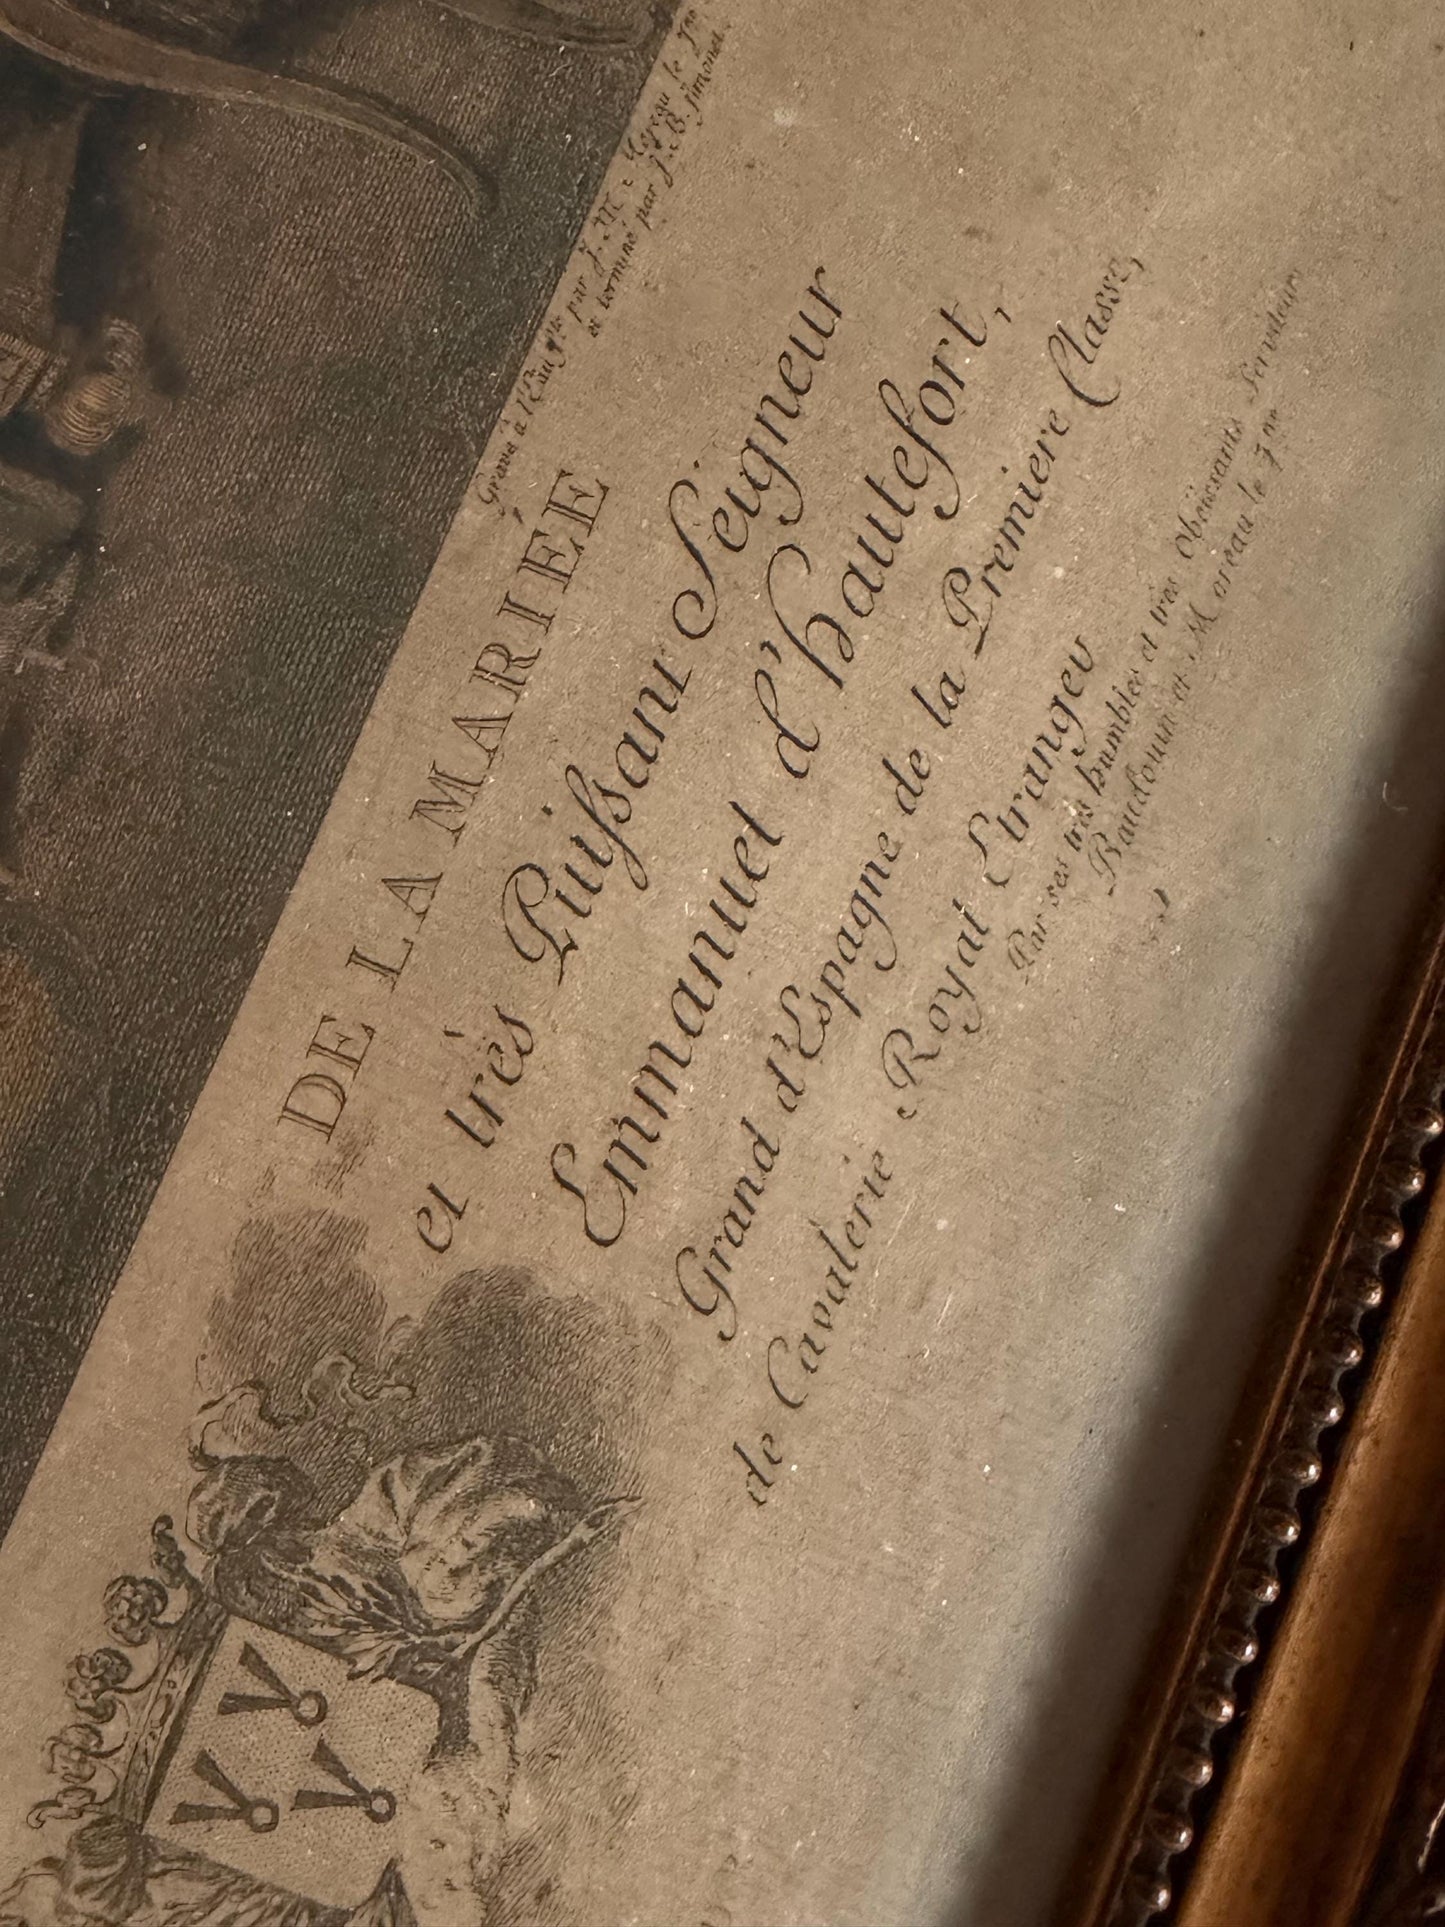 Gravé à l'Eau fte par J. M. Moreau le Jne
et terminé par J. B. Simonet
DE LA MARIÉE
et très Puissant Seigneur
Emmanuel d'hautefort,
Grand d'Espagne de la Premiere Classe,
de Cavalerie Royal Etranger
Par ses très humbles et très Obéissants Serviteurs
Baudouin et Moreau le Jne